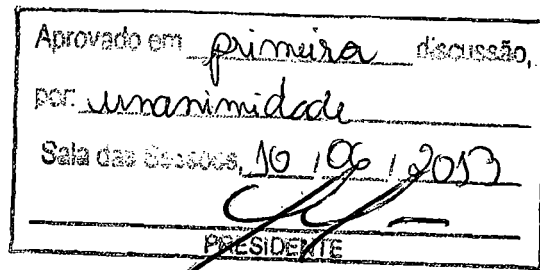 Aprovado em primeira discussão,
por: unanimidade
Sala das Sessões, 10 / 06 / 2013
PRESIDENTE